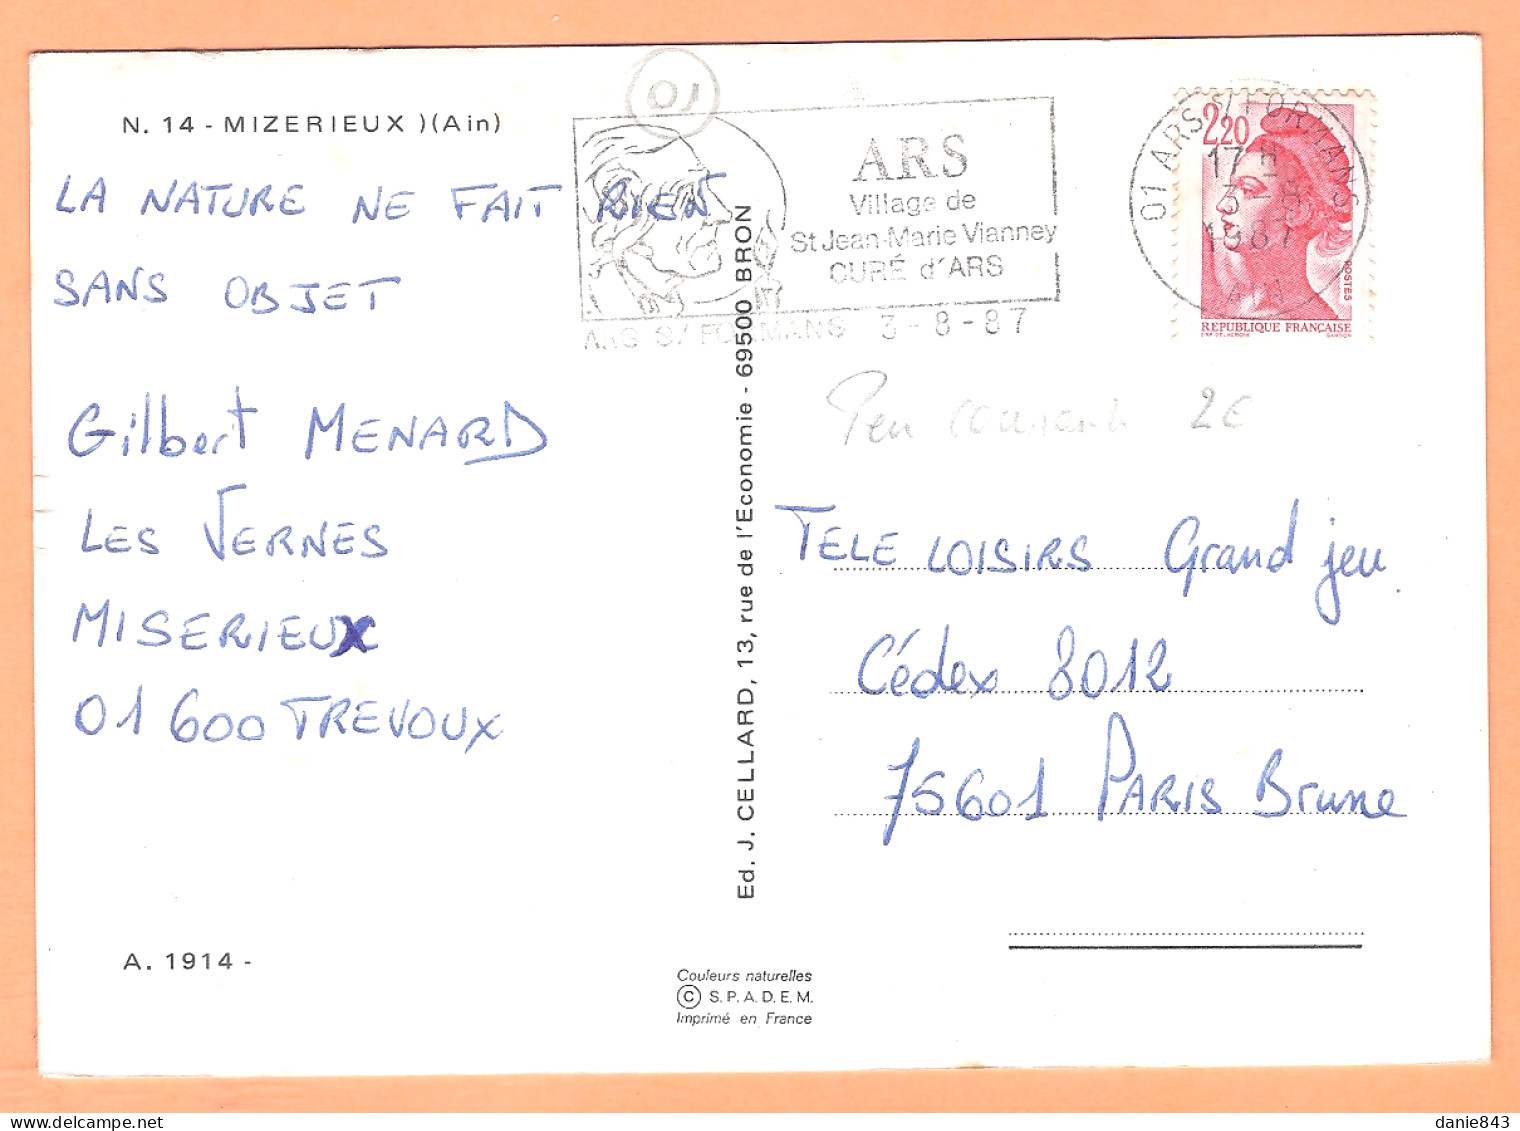 N. 14 - MIZERIEUX )(Ain)
LA NATURE NE FAIT RIEN
SANS OBJET
Gilbert MENARD
LES VERNES
MISERIEUX
01 600 TREVOUX
A. 1914 -
01
ARS
Village de
St Jean-Marie Vianney
CURÉ d'ARS
ARS S/ FORMANS 3-8-87
01 ARS S/ FORMANS
17 H
3 - 8
1987
AIN
2,20
POSTES
REPUBLIQUE FRANÇAISE
Peu courante 2€
Ed. J. CELLARD, 13, rue de l'Economie - 69500 BRON
TELE LOISIRS Grand jeu
Cédex 8012
75601 PARIS Brune
Couleurs naturelles
© S.P.A.D.E.M.
Imprimé en France
danie843